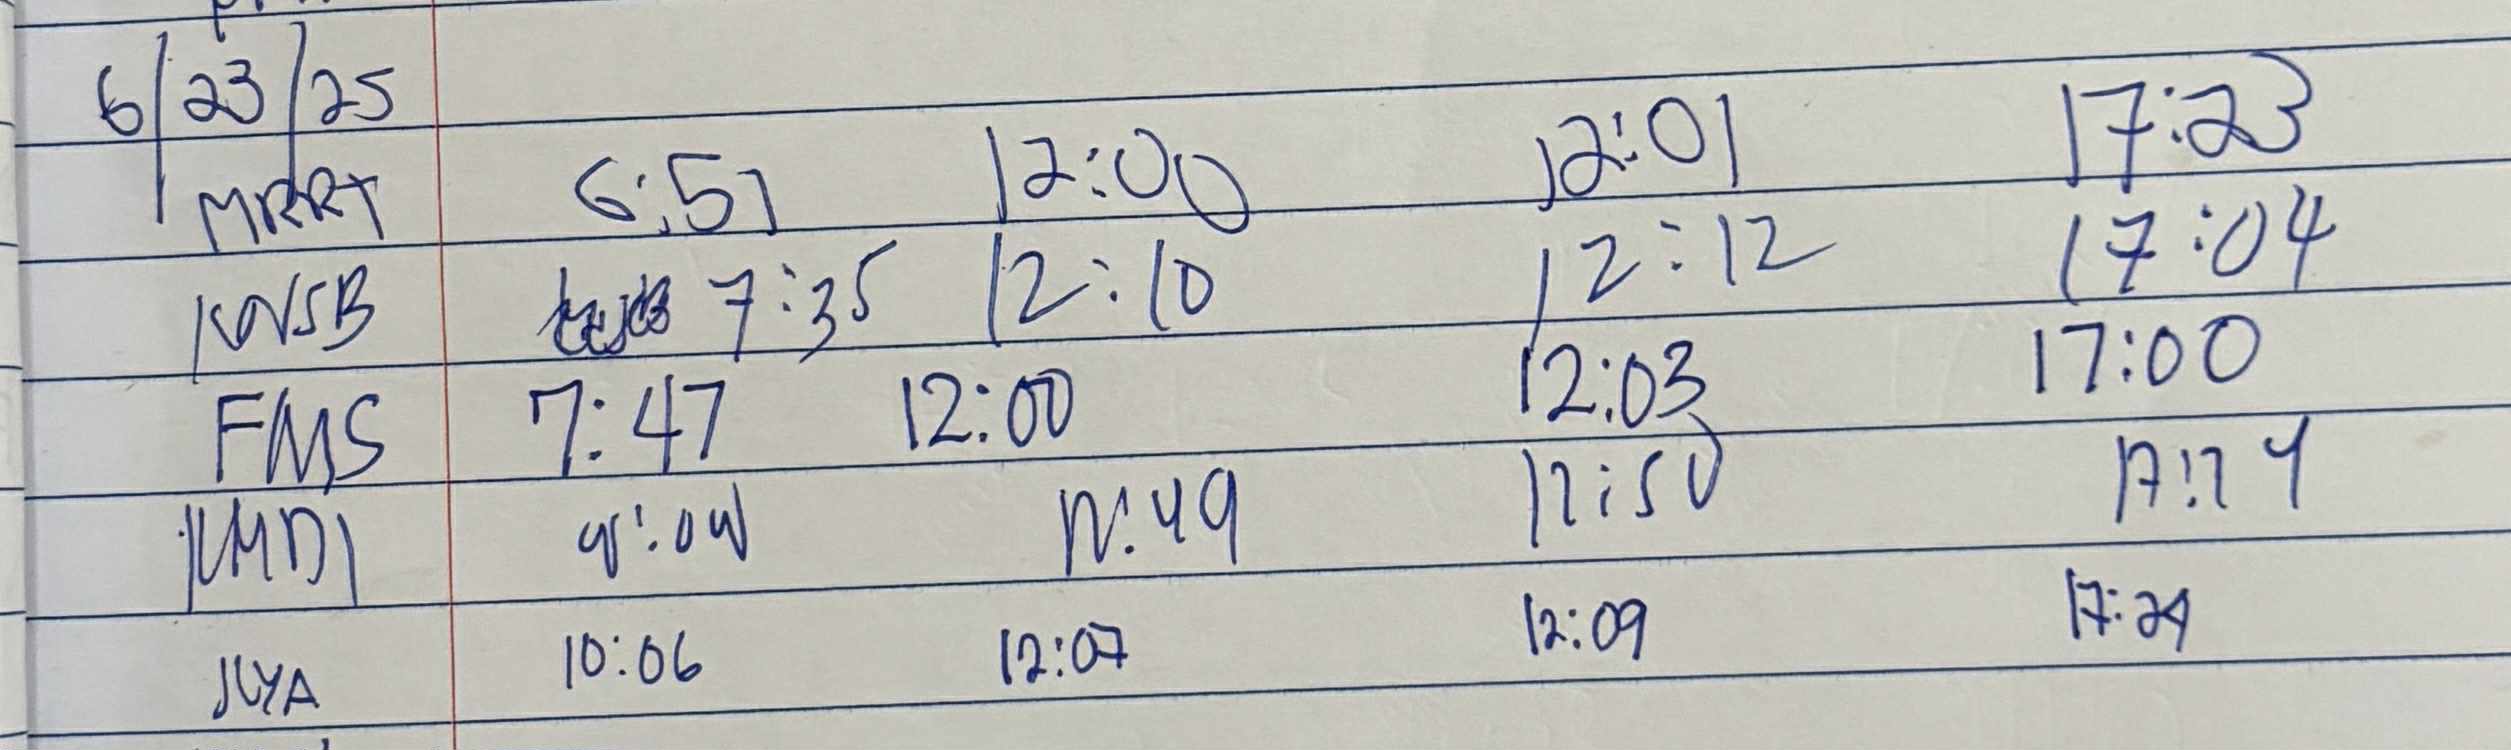 6/23/25
MRRT 6:51 12:00 12:01 17:23
KNSB 7:35 12:10 12:12 17:04
FMS 7:47 12:00 12:03 17:00
KMDI 12:49 12:50 17:24
JLYA 10:06 12:07 12:09 17:24